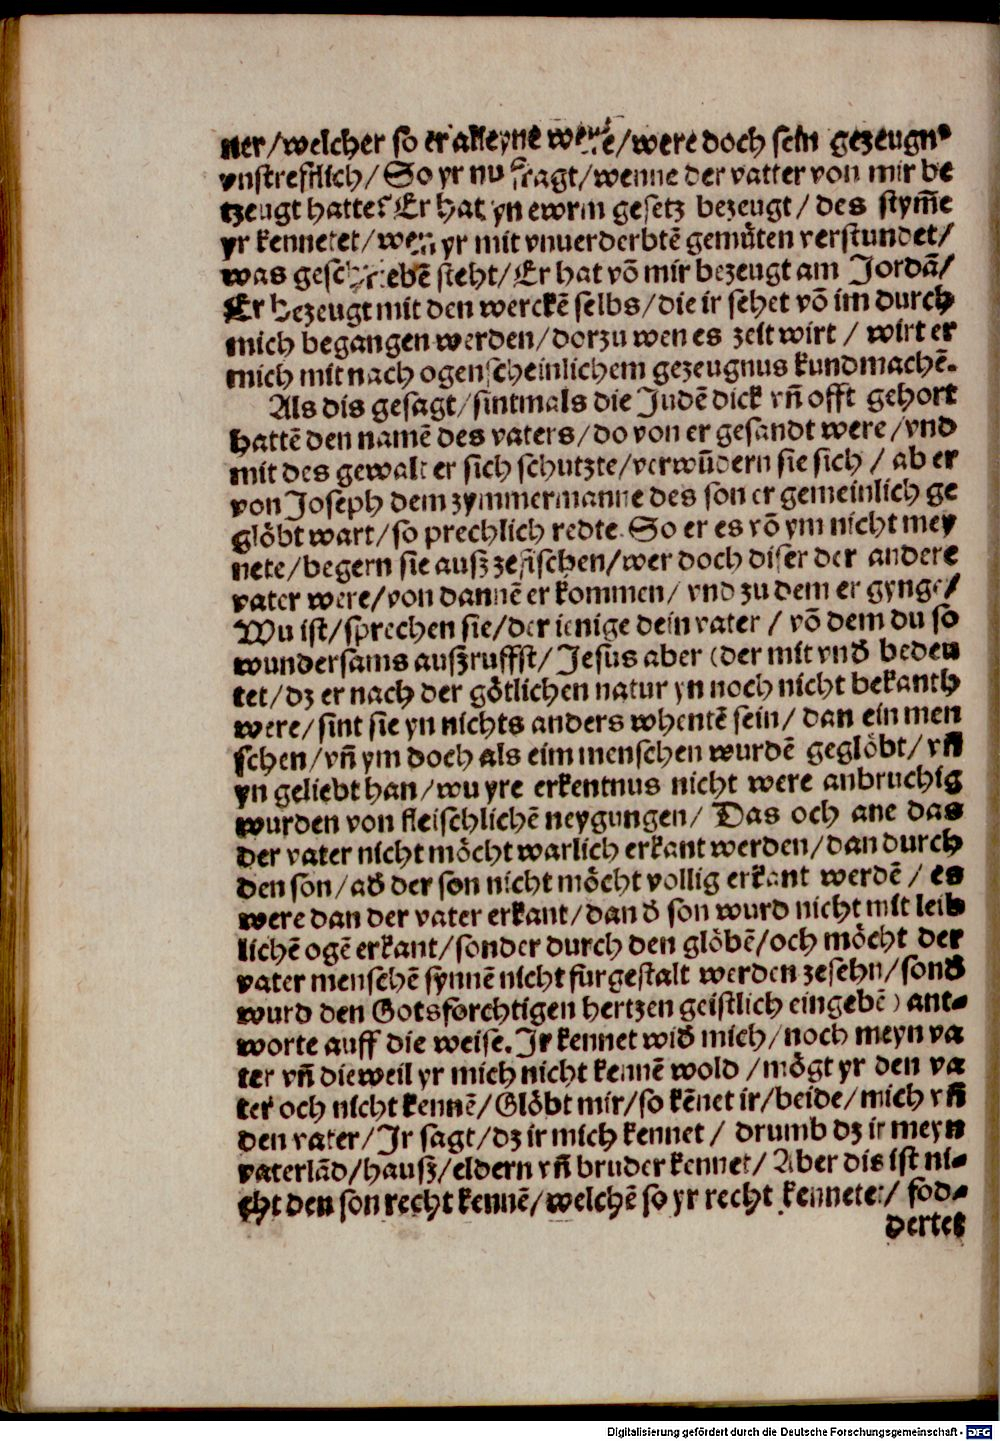 ner/welcher so er alleyne were/were doch sein gezeugn
vnstrefflich/ So yr nu fragt/wenne der vatter von mir be
tzeugt hatte? Er hat yn ewrm gesetz bezeugt/ des stym̄e
yr kennetet/ wen yr mit vnuerderbtē gemuͤten verstundet/
was geschriebē steht/ Er hat vō mir bezeugt am Jordā/
Er bezeugt mit den werckē selbs/die ir sehet vō im durch
mich begangen werden/dorzu wen es zeit wirt / wirt er
mich mit nach ogenscheinlichem gezeugnus kundmachē.
Als dis gesagt/sintmals die Judē dick vn̄ offt gehort
hattē den namē des vaters/do von er gesandt were/vnd
mit des gewalt er sich schutzte/verwūdern sie sich / ab er
von Joseph dem zymmermanne des son er gemeinlich ge
gloͤbt wart/so prechlich redte. So er es vō ym nicht mey
nete/begern sie auß zefischen/wer doch diser der andere
vater were/von dannē er kommen/ vnd zu dem er gynge/
Wu ist/sprechen sie/der ienige dein vater / vō dem du so
wundersams außruffst/ Jesus aber (der mit vnd̄ beden
tet/dz er nach der goͤtlichen natur yn noch nicht bekanth
were/sint sie yn nichts anders whentē sein/ dan ein men
schen/vn̄ ym doch als eim menschen wurdē gegloͤbt/vn̄
yn geliebt han/wu yre erkentnus nicht were anbruchig
wurden von fleischlichē neygungen/ Das och ane das
der vater nicht moͤcht warlich erkant werden/dan durch
den son/ad̄ der son nicht moͤcht vollig erkant werdē / es
were dan der vater erkant/dan d̄ son wurd nicht mit leib
lichē ogē erkant/sonder durch den gloͤbē/och moͤcht der
vater menschē synnē nicht furgestalt werden zesehn/sond̄
wurd den Gotsforchtigen hertzen geistlich eingebē) ant-
worte auff die weise. Ir kennet wid̄ mich/noch meyn va
ter vn̄ dieweil yr mich nicht kennē wold /moͤgt yr den va
ter och nicht kennē/Gloͤbt mir/so kēnet ir/beide/mich vn̄
den vater/Ir sagt/dz ir mich kennet / drumb dz ir meyn
vaterlād/hauß/eldern vn̄ bruder kennet/ Aber dis ist ni-
cht den son recht kennē/welchē so yr recht kennetet/ fod-
dertet
Digitalisierung gefördert durch die Deutsche Forschungsgemeinschaft - DFG